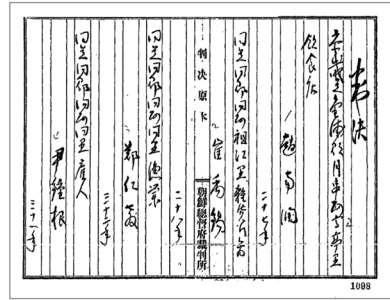 判決
飲食店
趙南潤
二十七年
同道同郡同面祖江里雜貨行商
崔禹錫
二十八年
判決原本
朝鮮總督府裁判所
同道同郡同面同里漁業
鄭仁燮
三十二年
同道同郡同面同里雇人
尹鍾根
三十一年
1008